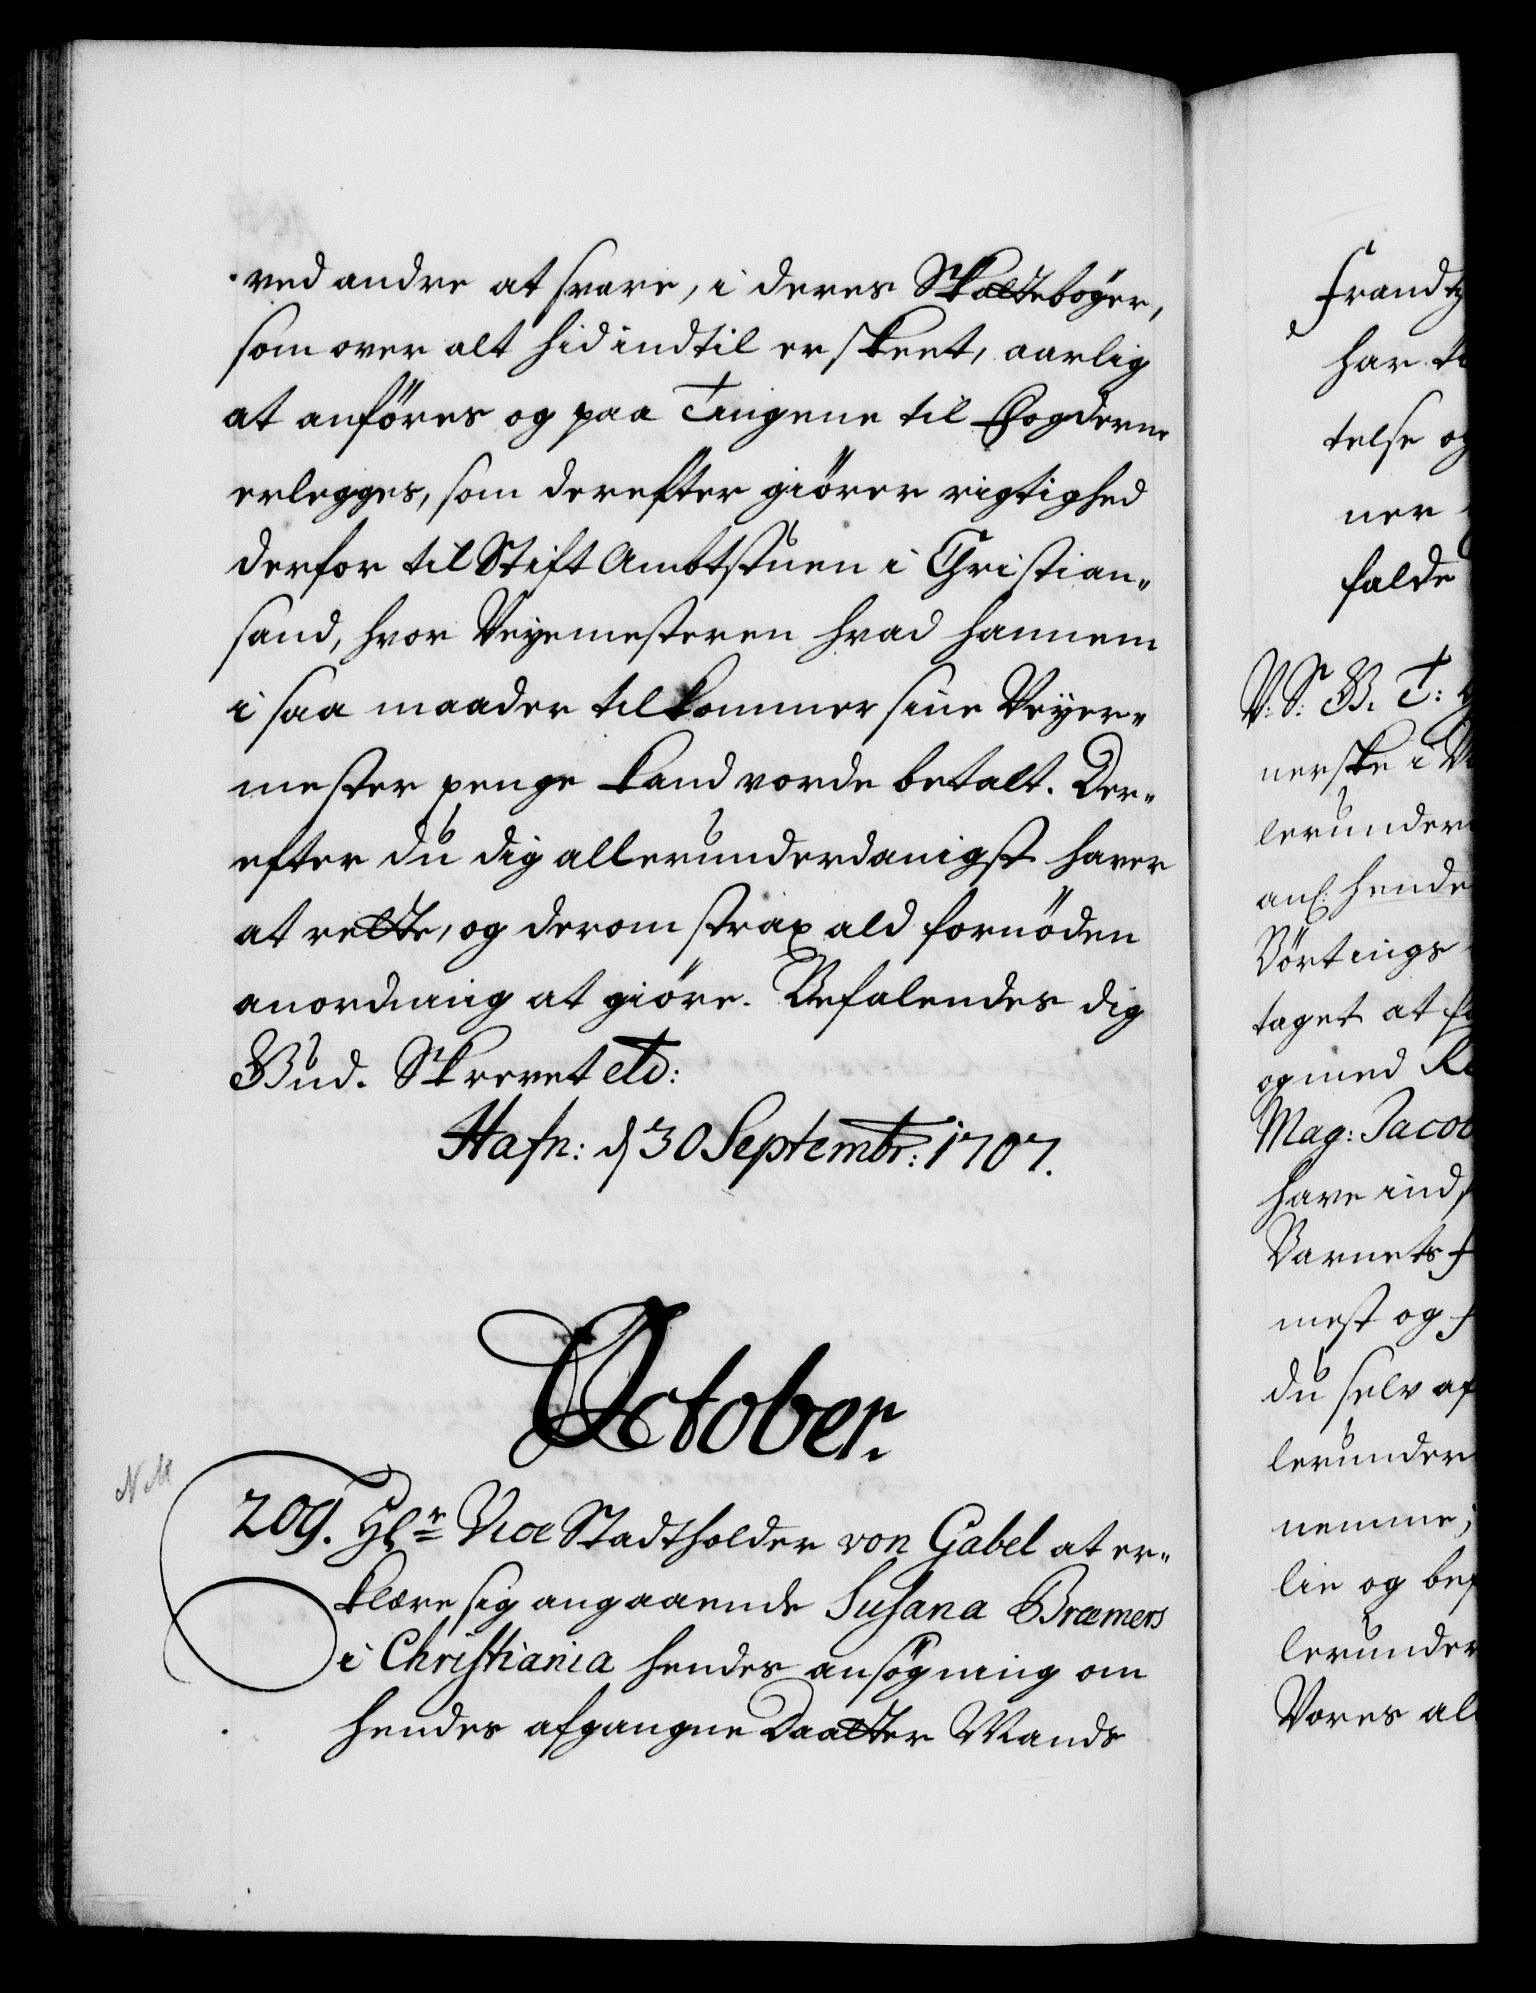 ved andre at svare, i deres Skattebøger,
som over alt hid indtil er skeet, aarlig
at anføres og paa Tingene til Fogderne
erlegges, som derefter giører rigtighed
derfor til Stift Ambtstuen i Christian„
sand, hvor Veyemesteren hvad hannem
i saa maader tilkommer sine Veyer„
mester penge kand vorde betalt. Der„
efter du dig allerunderdanigst haver
at rette, og derom strax ald fornøden
anordning at giøre. Befalendes dig
Gud. Skrevet etc:
Hafn: d 30 Septembr: 1707.
October.
N M
209. Hr Vice Stadtholder von Gabel at er„
klære sig angaaende Susana Bræmers
i Christiania hendes ansøgning om
hendes afgangne Daatter Mands
Frandtz
har
telse og
ner
falde
V. S. G. T:
nerske i
lerunder
anl: hende
Børtings
taget at
og med
Mag: Jacob
have ind
Barnets
mest og
du selv af
lerunder
nemme,
lie og bef
lerunder
Vores al